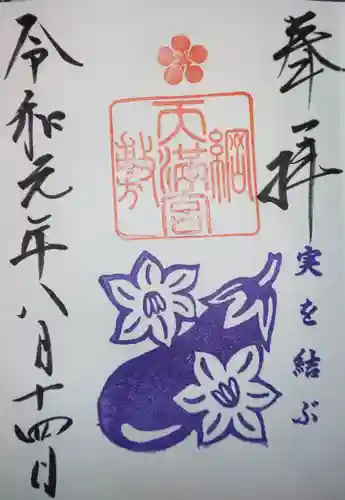 奉拝
綱敷天満宮
実を結ぶ
令和元年八月十四日